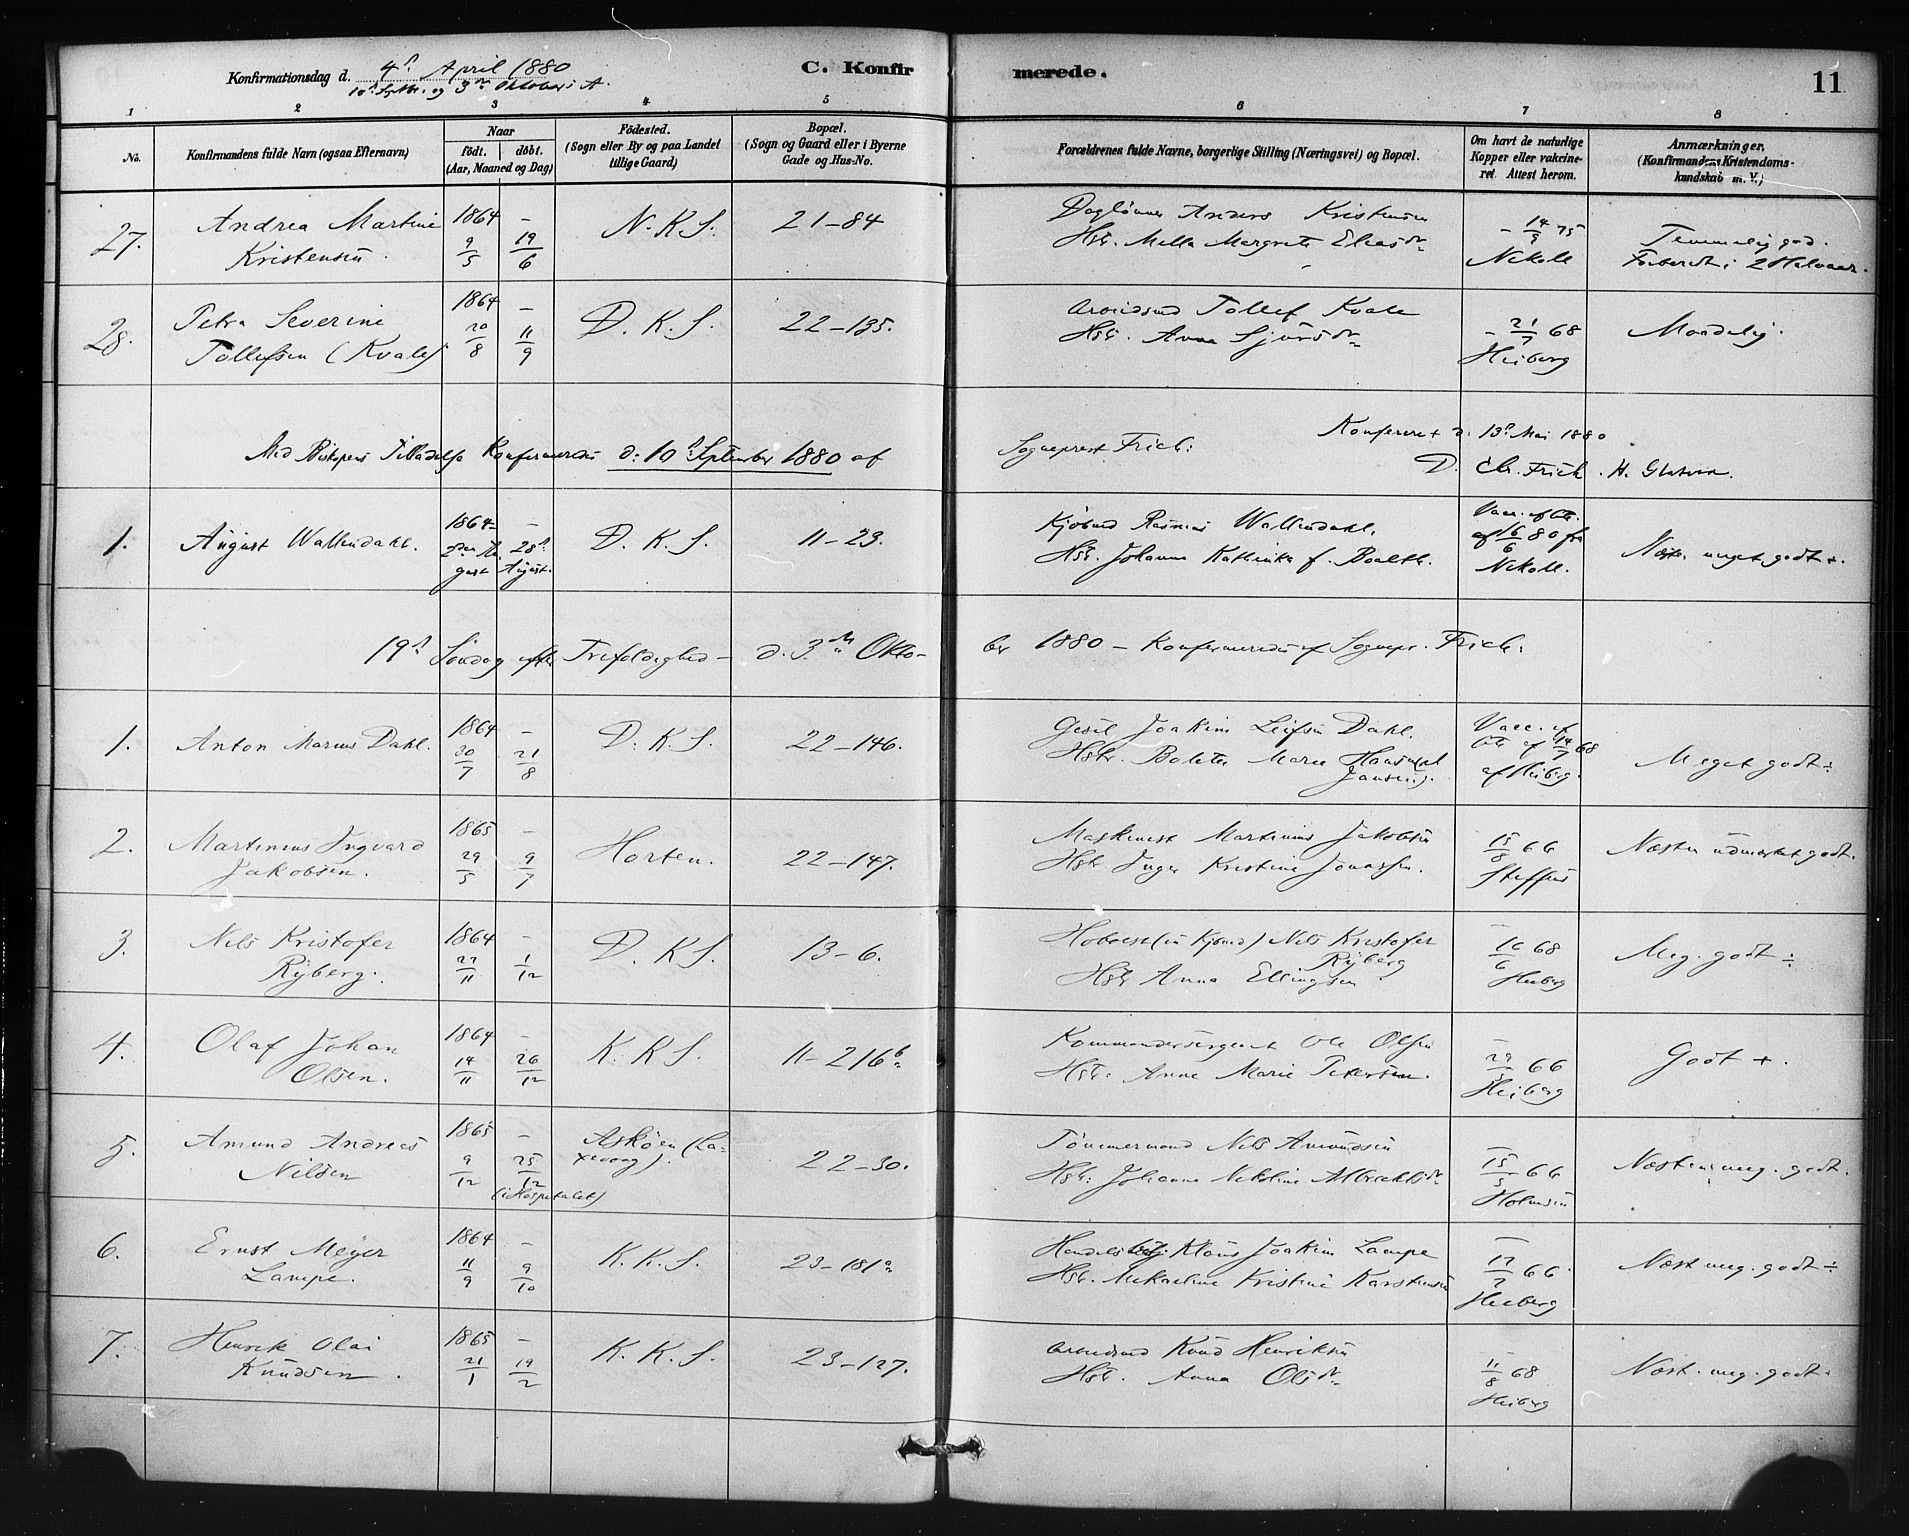 Konfirmationsdag d. 4d April 1880
10d Septbr. og 3die Oktober s. A.
C. Konfirmerede.
11
1 2 3 4 5 6 7 8
No.
Konfirmandens fulde Navn (ogsaa Efternavn)
Naar
født. døbt.
(Aar, Maaned og Dag)
Fødested.
(Sogn eller By og paa Landet
tillige Gaard)
Bopæl.
(Sogn og Gaard eller i Byerne
Gade og Hus-No.
Forældrenes fulde Navne, borgerlige Stilling (Næringsvei) og Bopæl.
Om havt de naturlige
Kopper eller vakcine-
ret. Attest herom.
Anmærkninger.
(Konfirmandens Kristendoms-
kundskab m. V.)
27. Andrea Martine 1864 – N. K. S. 21–84 Daglønner Anders Kristensen – 14/9 75 Temmelig god.
Kristensen. 9/5 19/6 Hst. Mella Margrete Eliasdr Nekoll 2 Halvaar.
28. Petra Severine 1864 – D. K. S. 22–135. Arbeidsmd Tollef Kvale – 21/7 68 Maadelig.
Tollefsen (Kvale) 20/8 11/9 Hst. Anna Sjursdr Heiberg
Med Biskopens Tilladelse Konfirmeredes d: 10d September 1880 af Sogneprest Frich: Konfereret d. 13d Mai 1880.
D. Chr. Frich. H.
1. August Wallendahl. 1864 – D. K. S. 11–23. Kjøbmd Rasmus Wallendahl. Vacc. Att.
28d August. Hst. Johanna Kathinka f. af 16/6 80 fra Næst. meget godt +.
Nekoll.
19d Søndag efter Trefoldighed – d. 3die Oktober 1880 – Konfirmeredes af Sognepr. Frich.
1. Anton Marius Dahl. 1864 – D. K. S. 22–146. Gesel Joakim Dahl. Vacc. Att. af 14/7 68
30/7 21/8 Hst. Bolette Marie Jansen). af Heiberg. Meget godt ÷
2. Martinius Ingvard 1865 – Horten. 22–147. Maskinist Martinius Jakobsen 15/8 66 Næsten udmærket godt.
Jakobsen. 29/5 9/7 Hst. Inger Kristine Jonassen. Steffens
3. Nils Kristofer 1864 – D. K S. 13–6. Nils Kristofer 16/6 68 Meg. godt ÷
Ryberg. 27/11 1/12 Ryberg
Hst. Anna Ellingsen Heiberg
4. Olaf Johan 1864 – K. K S. 11–216b Kommandersergeant Ole Olsen 66 Godt +.
Olsen. 14/11 26/12 Hst. Anne Marie Petersen. Heiberg
5. Amund Andreas 1865 – Askøen (La- 22–30. Tømmermand Nils Amundsen 15/5 66 Næsten meg. godt.
Nilsen 9/12 25/12 xevaag). Hst: Johanne Nikoline Albrechtsdr Holmsen
(i Hospitalet)
6. Ernst Meyer 1864 – K. K. S. 23–181a Handelsbetj. Klaus Joakim Lampe 17/7 66 Næst meg. godt ÷
Lampe. 11/9 9/10 Hst. Mikaeline Kristine Karstensen Heiberg
7. Henrik Olai 1865 – K. K. S. 23–127. Arbeidsmd Knud Henriksen 11/8 68 Næst. meg. godt.
Knudsen. 21/1 19/2 Hst. Anna Olsdr Heiberg